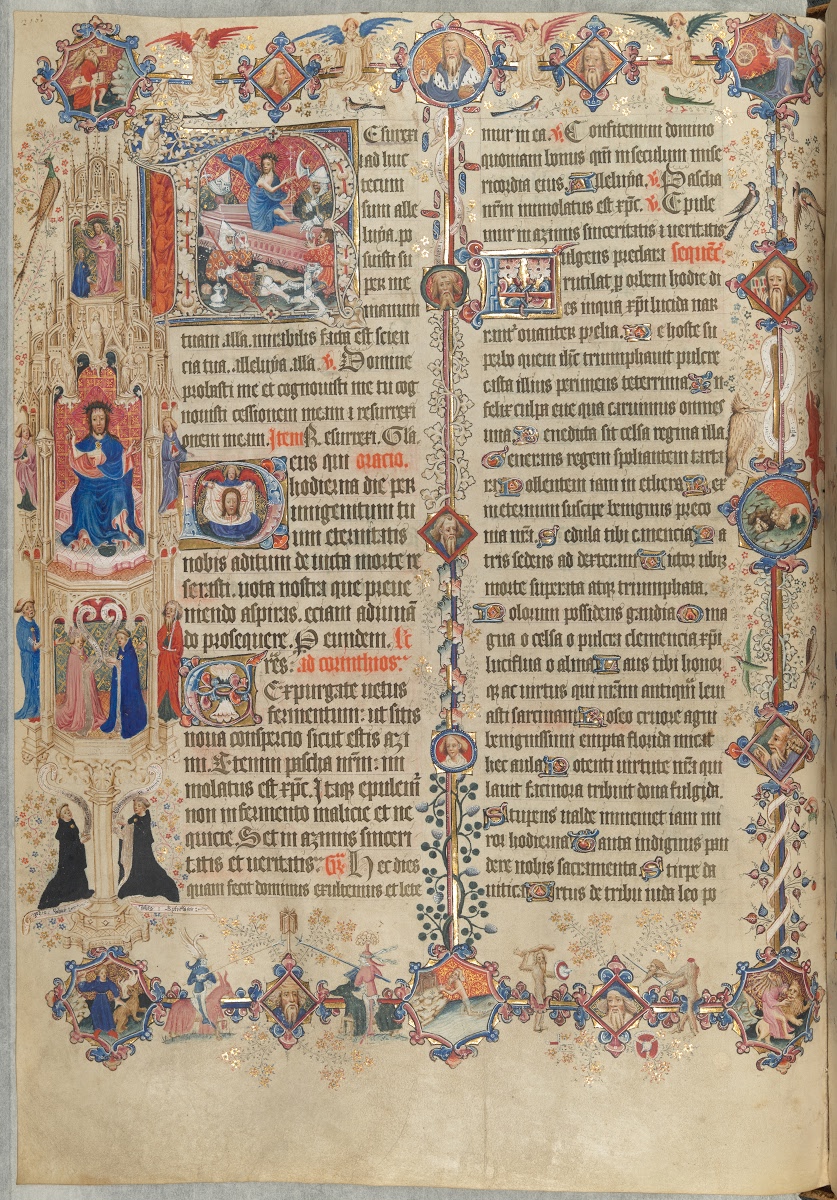 Esurexi
ad huc
tecum
sum alle
luya. po
suisti su
per me
manum
tuam. alla. mirabilis facta est scien
cia tua. alleluya. alla. v. Domine
probasti me et cognouisti me tu cog
nouisti cessionem meam ⁊ resurrexi
onem meam. Item R. esurrexi. Gla.
Deus qui oracio.
hodierna die per
unigenitum tu
um eternitatis
nobis aditum de uicta morte re
serasti. uota nostra que preue
niendo aspiras. eciam adiuuan̄
do prosequere. P eundem. Lc̄
res: ad corinthios:
Expurgate uetus
fermentum: ut sitis
noua conspercio sicut estis azi
mi. Etenim pascha nr̄m: im
molatus est xp̄c. Itaq; epulem̄
non in fermento malicie et ne
quicie. Set in azimis sinceri
tatis et ueritatis: Gr̄. Hec dies
quam fecit dominus exultemus et lete
mur in ea. v. Confitemini domino
quoniam bonus qm̄ in seculum mise
ricordia eius. Alleluya. v. Pascha
nr̄m immolatus est xp̄c. v. Epule
mur in azimis sinceritatis ⁊ ueritatis.
Fulgens preclara sequēc̄.
rutilat p̱ orbem hodie di
es in qua xp̄i lucida nar
rant᷑ ouanter prelia. De hoste su
perbo quem ih̄c triumphauit pulcre
castra illius perimens teterrima. In
felix culpa eue qua caruimus omnes
uita. Benedicta sit celsa regina illa.
Generans regem spoliantem tartara
Pollentem iam in ethera. Rex
in eternum suscipe benignus preco
nia nr̄a. Sedula tibi c.mencia. Pa
tris sedens ad dexteram. Victor ubiq;
morte superata atq; triumphata.
Polorum possidens gaudia. O ma
gna o celsa o pulcra clemencia xp̄i
luciflua o alma. Laus tibi honor
q; ac uirtus qui nr̄am antiquam leui
asti sarcinam. Roseo cruore agni
benignissimi empta florida micat
hec aula. Potenti uirtute nr̄a qui
lauit facinora tribuit dona fulgida.
Stupens ualde in memet iam mi
ror hodierna. Tanta indignis pan
dere nobis sacramenta. Stirpe da
uitica. Ortus de tribu iuda leo po